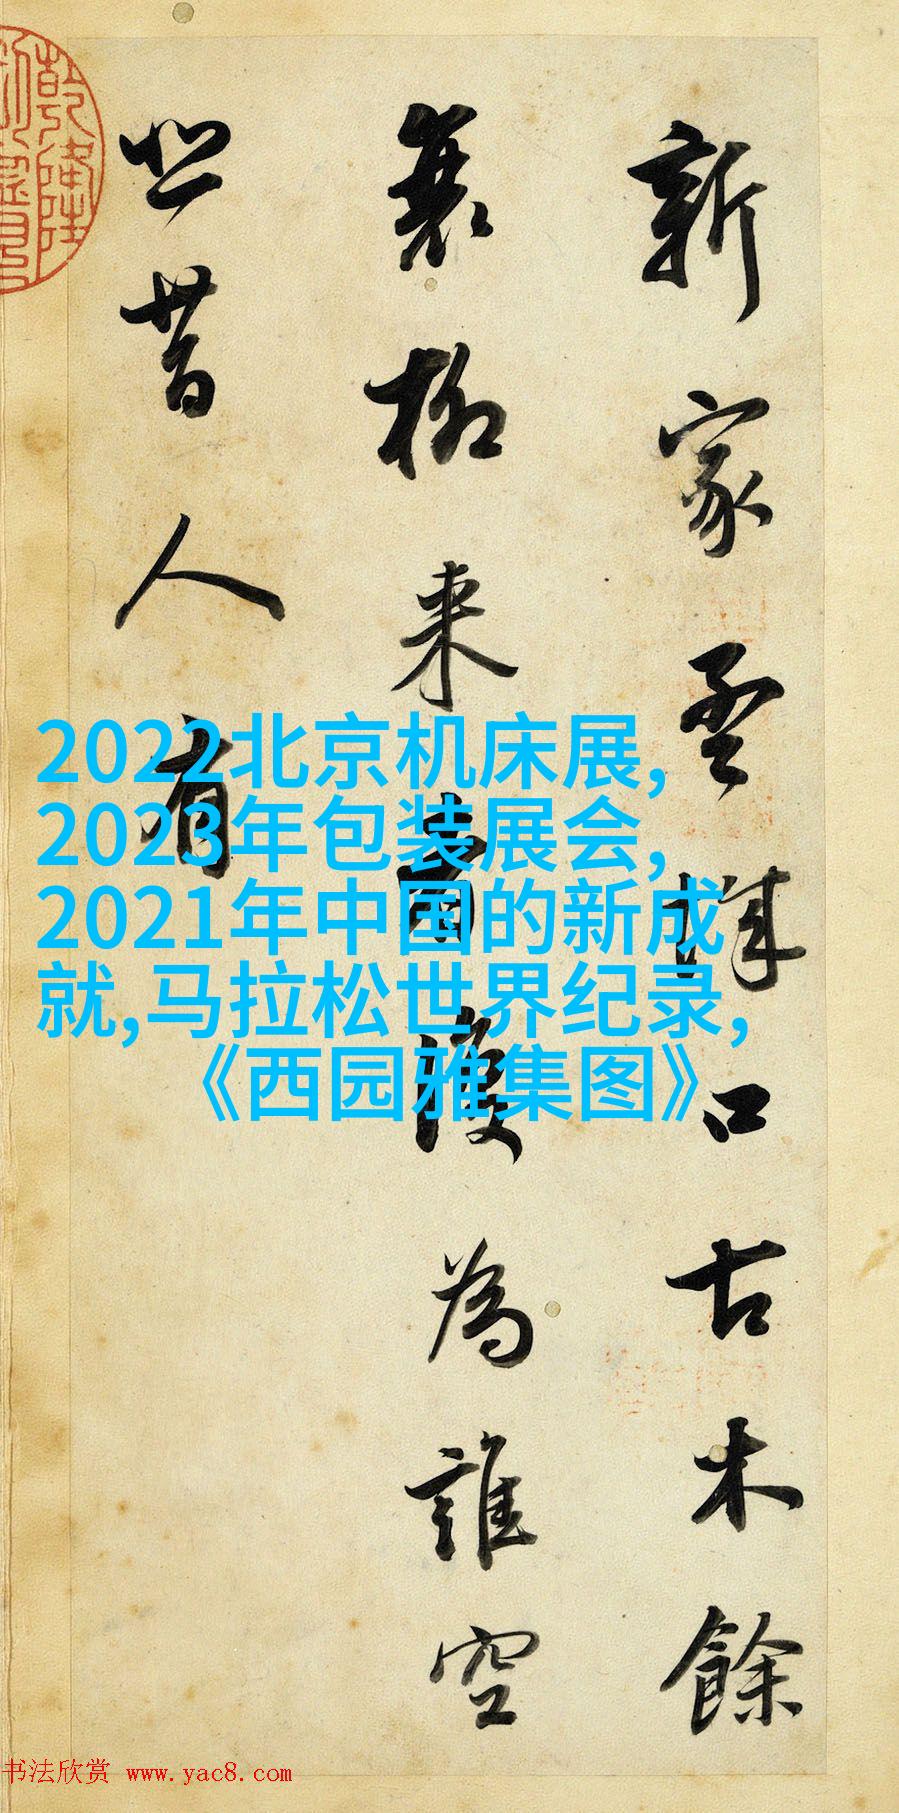 新家孟城口古木餘
衰柳来者復為誰空
悲昔人有
乾隆
2022北京机床展,
2023年包装展会,
2021年中国的新成
就,马拉松世界纪录,
《西园雅集图》
书法欣赏 www.yac8.com